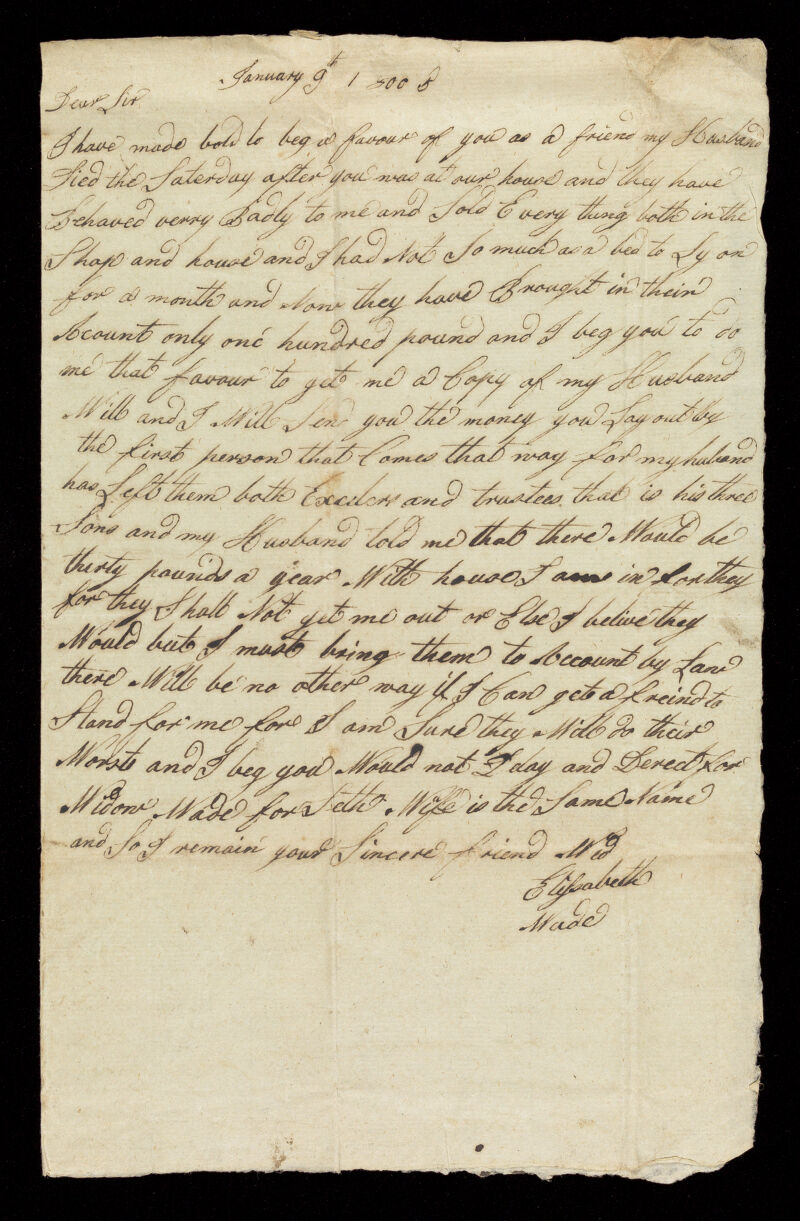 January 9th 1800 8
Dear Sir
I have made bold to beg a favour of you as a friend my Husband
Died the Saterday after you was at our house and they have
Behaved verry Badly to me and Sold Every thing both in the
Shop and house and I had Not So much as a bed to Ly on
for a month and Now they have Brought in their
Acount only one hundred pound and I beg you to do
me that favour to get me a Copy of my Husband
Will and I Will Send you the money you Lay out by
the first person that Comes that way for my huband
has Left them both and trustees that is his three
Sons and my Husband told me that there Would be
therty pounds a year With house I am in for they
for they Shall Not get me out or Else I belive they
Would but I must bring them to Account by Law
there Will be no other way if I Can get a freind to
Stand for me for I am Sure they Will do their
Worst and I beg you Would not Dday and Derect for
Widow Wade for Seth Wife is the Same Name
and So I remain your Sincere friend Wid
Elissabeth
Wade